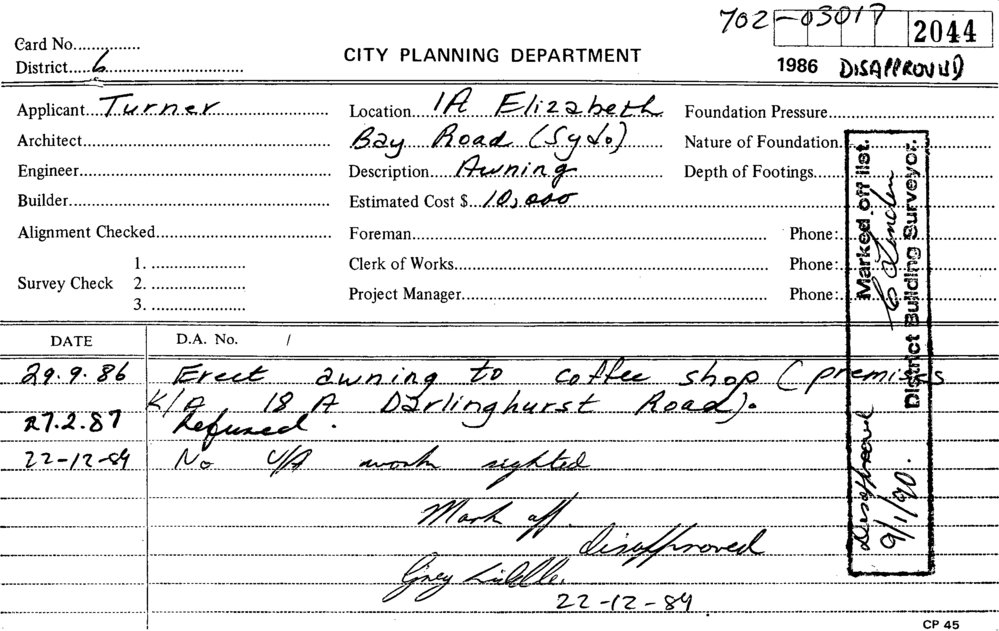 702-03017 2044
Card No...............
District.....6..............................
CITY PLANNING DEPARTMENT
1986 DISAPPROVED
Applicant...Turner
Location...1A Elizabeth
Bay Road (Syd.)
Foundation Pressure
Architect
Nature of Foundation
Engineer
Description...Awning
Depth of Footings
Builder
Estimated Cost $...10,000
Alignment Checked
Foreman
Phone:
Survey Check
1.
2.
3.
Clerk of Works
Phone:
Project Manager
Phone:
Marked off list.
District Building Surveyor.
Disapproved
9/1/90.
DATE
D.A. No. /
29.9.86 Erect awning to coffee shop (premises
K/A 18A Darlinghurst Road).
27.2.87 Refused.
22-12-89 No U/A work sighted
Mark off
disapproved
Greg
22-12-89
CP 45